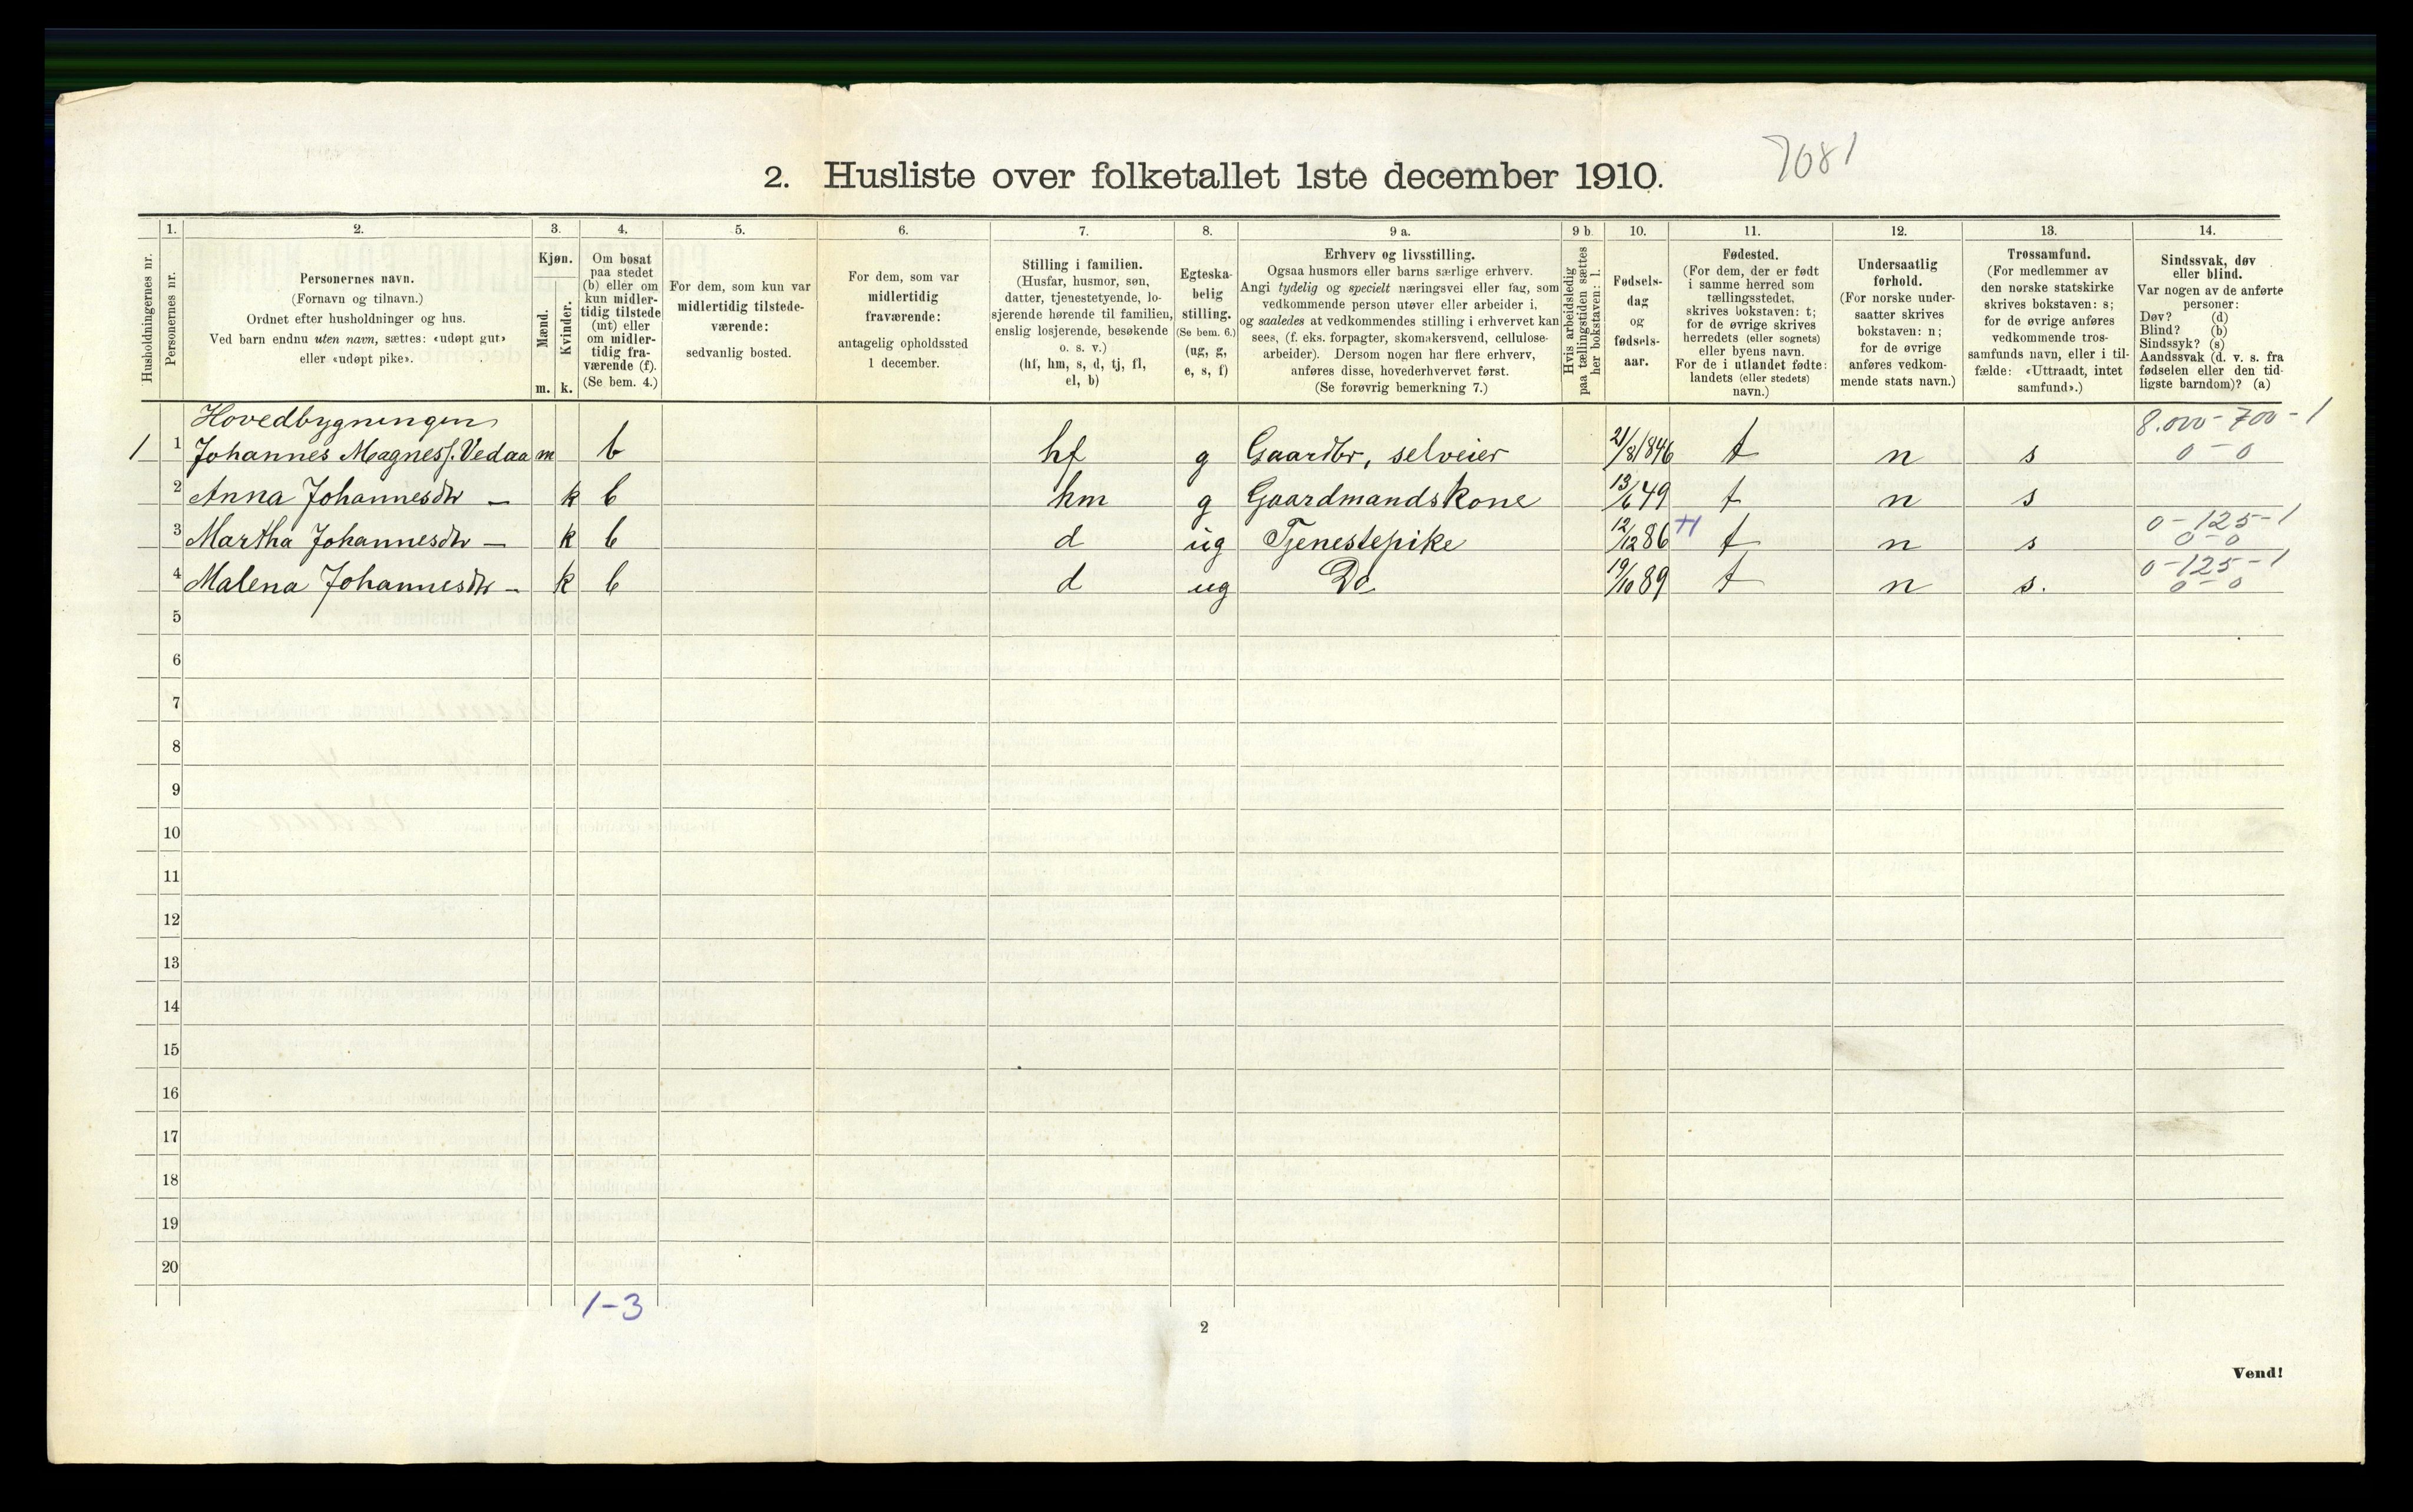 7081
2. Husliste over folketallet 1ste december 1910.
Husholdningernes nr.
1.
Personernes nr.
2.
Personernes navn.
(Fornavn og tilnavn.)
Ordnet efter husholdninger og hus.
Ved barn endnu uten navn, sættes: «udøpt gut»
eller «udøpt pike».
3.
Kjøn.
Mænd.
Kvinder.
m. k.
4.
Om bosat
paa stedet
(b) eller om
kun midler-
tidig tilstede
(mt) eller
om midler-
tidig fra-
værende (f).
(Se bem. 4.)
5.
For dem, som kun var
midlertidig tilstede-
værende:
sedvanlig bosted.
6.
For dem, som var
midlertidig
fraværende:
antagelig opholdssted
1 december.
7.
Stilling i familien.
(Husfar, husmor, søn,
datter, tjenestetyende, lo-
sjerende hørende til familien,
enslig losjerende, besøkende
o. s. v.)
(hf, hm, s, d, tj, fl,
el, b)
8.
Egteska-
belig
stilling.
(Se bem. 6.)
(ug, g,
e, s, f)
9 a.
Erhverv og livsstilling.
Ogsaa husmors eller barns særlige erhverv.
Angi tydelig og specielt næringsvei eller fag, som
vedkommende person utøver eller arbeider i,
og saaledes at vedkommendes stilling i erhvervet kan
sees, (f. eks. forpagter, skomakersvend, cellulose-
arbeider). Dersom nogen har flere erhverv,
anføres disse, hovederhvervet først.
(Se forøvrig bemerkning 7.)
9 b.
Hvis arbeidsledig
paa tællingstiden sættes
her bokstaven: l.
10.
Fødsels-
dag
og
fødsels-
aar.
11.
Fødested.
(For dem, der er født
i samme herred som
tællingsstedet,
skrives bokstaven: t;
for de øvrige skrives
herredets (eller sognets)
eller byens navn.
For de i utlandet fødte:
landets (eller stedets)
navn.)
12.
Undersaatlig
forhold.
(For norske under-
saatter skrives
bokstaven: n;
for de øvrige
anføres vedkom-
mende stats navn.)
13.
Trossamfund.
(For medlemmer av
den norske statskirke
skrives bokstaven: s;
for de øvrige anføres
vedkommende tros-
samfunds navn, eller i til-
fælde: «Uttraadt, intet
samfund».)
14.
Sindssvak, døv
eller blind.
Var nogen av de anførte
personer:
Døv? (d)
Blind? (b)
Sindssyk? (s)
Aandssvak (d. v. s. fra
fødselen eller den tid-
ligste barndom)? (a)
Hovedbygningen 8.000-700-1
1 1 Johannes Magness. Vedaa m b hf g Gaardbr, selveier 21/8 1846 t n s 0-0
2 Anna Johannesdtr — k b hm g Gaardmandskone 13/6 49 t n s
0-125-1
3 Martha Johannesdtr — k b d ug Tjenestepike 12/12 86 t n s 0-0
0-125-1
4 Malena Johannesdtr — k b d ug Do 19/10 89 t n s. 0-0
5
6
7
8
9
10
11
12
13
14
15
16
17
18
19
20
1-3
2
Vend!